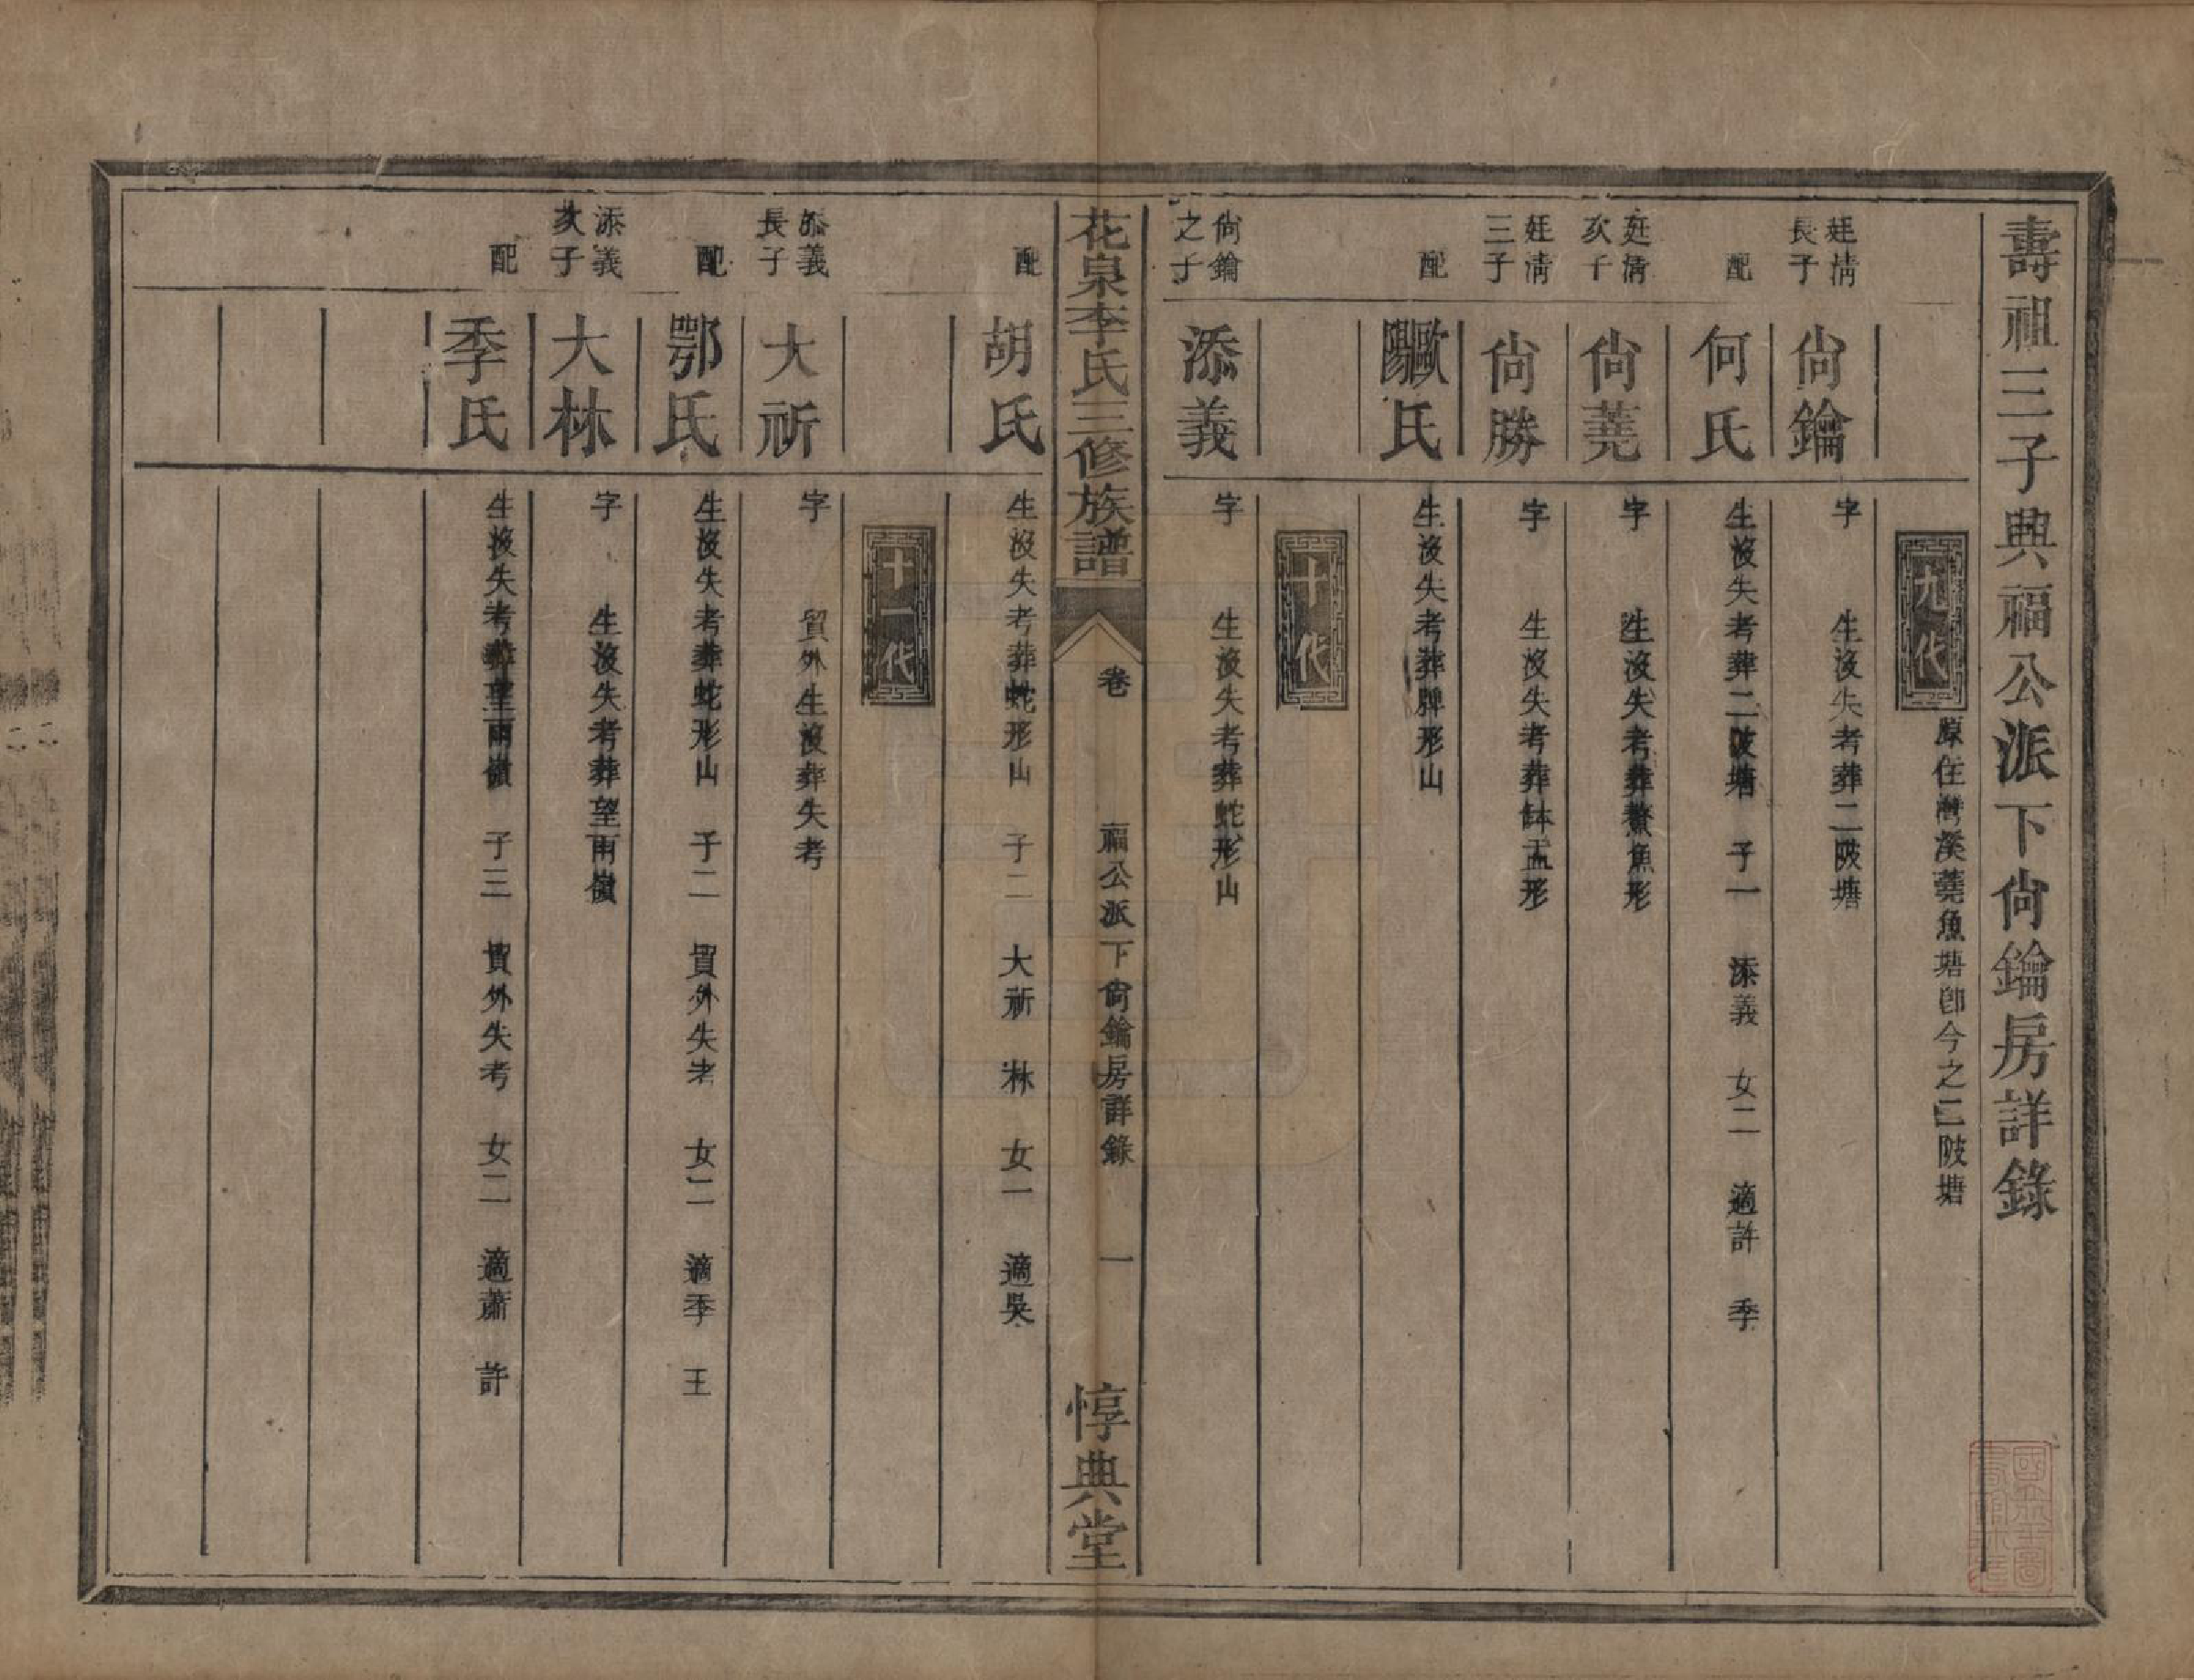 壽祖三子典福公派下尙鑰房詳錄
九代
原住灣溪蕘魚塘卽今之二陂塘
廷淸長子
尙鑰
字 生沒失考葬二陂塘
配
何氏
生沒失考葬二陂塘 子一 添義 女二 適許 季
廷淸次子
尙蕘
字 生沒失考葬鰲魚形
廷淸三子
尙勝
字 生沒失考葬鉢盂形
配
歐陽氏
生沒失考葬牌形山
十代
尙鑰之子
添義
字 生沒失考葬蛇形山
花泉李氏三修族譜
卷
福公派下尙鑰房詳錄
一
惇典堂
配
胡氏
生沒失考葬蛇形山 子二 大祈 林 女一 適吳
十一代
添義長子
大祈
字 貿外生沒葬失考
配
鄂氏
生沒失考葬蛇形山 子二 貿外失考 女二 適季 王
添義次子
大林
字 生沒失考葬望雨嶺
配
季氏
生沒失考葬望雨嶺 子三 貿外失考 女二 適蕭 許